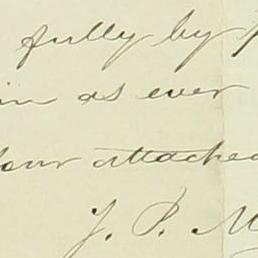 fully by
in as ever
your attached
J. P. M